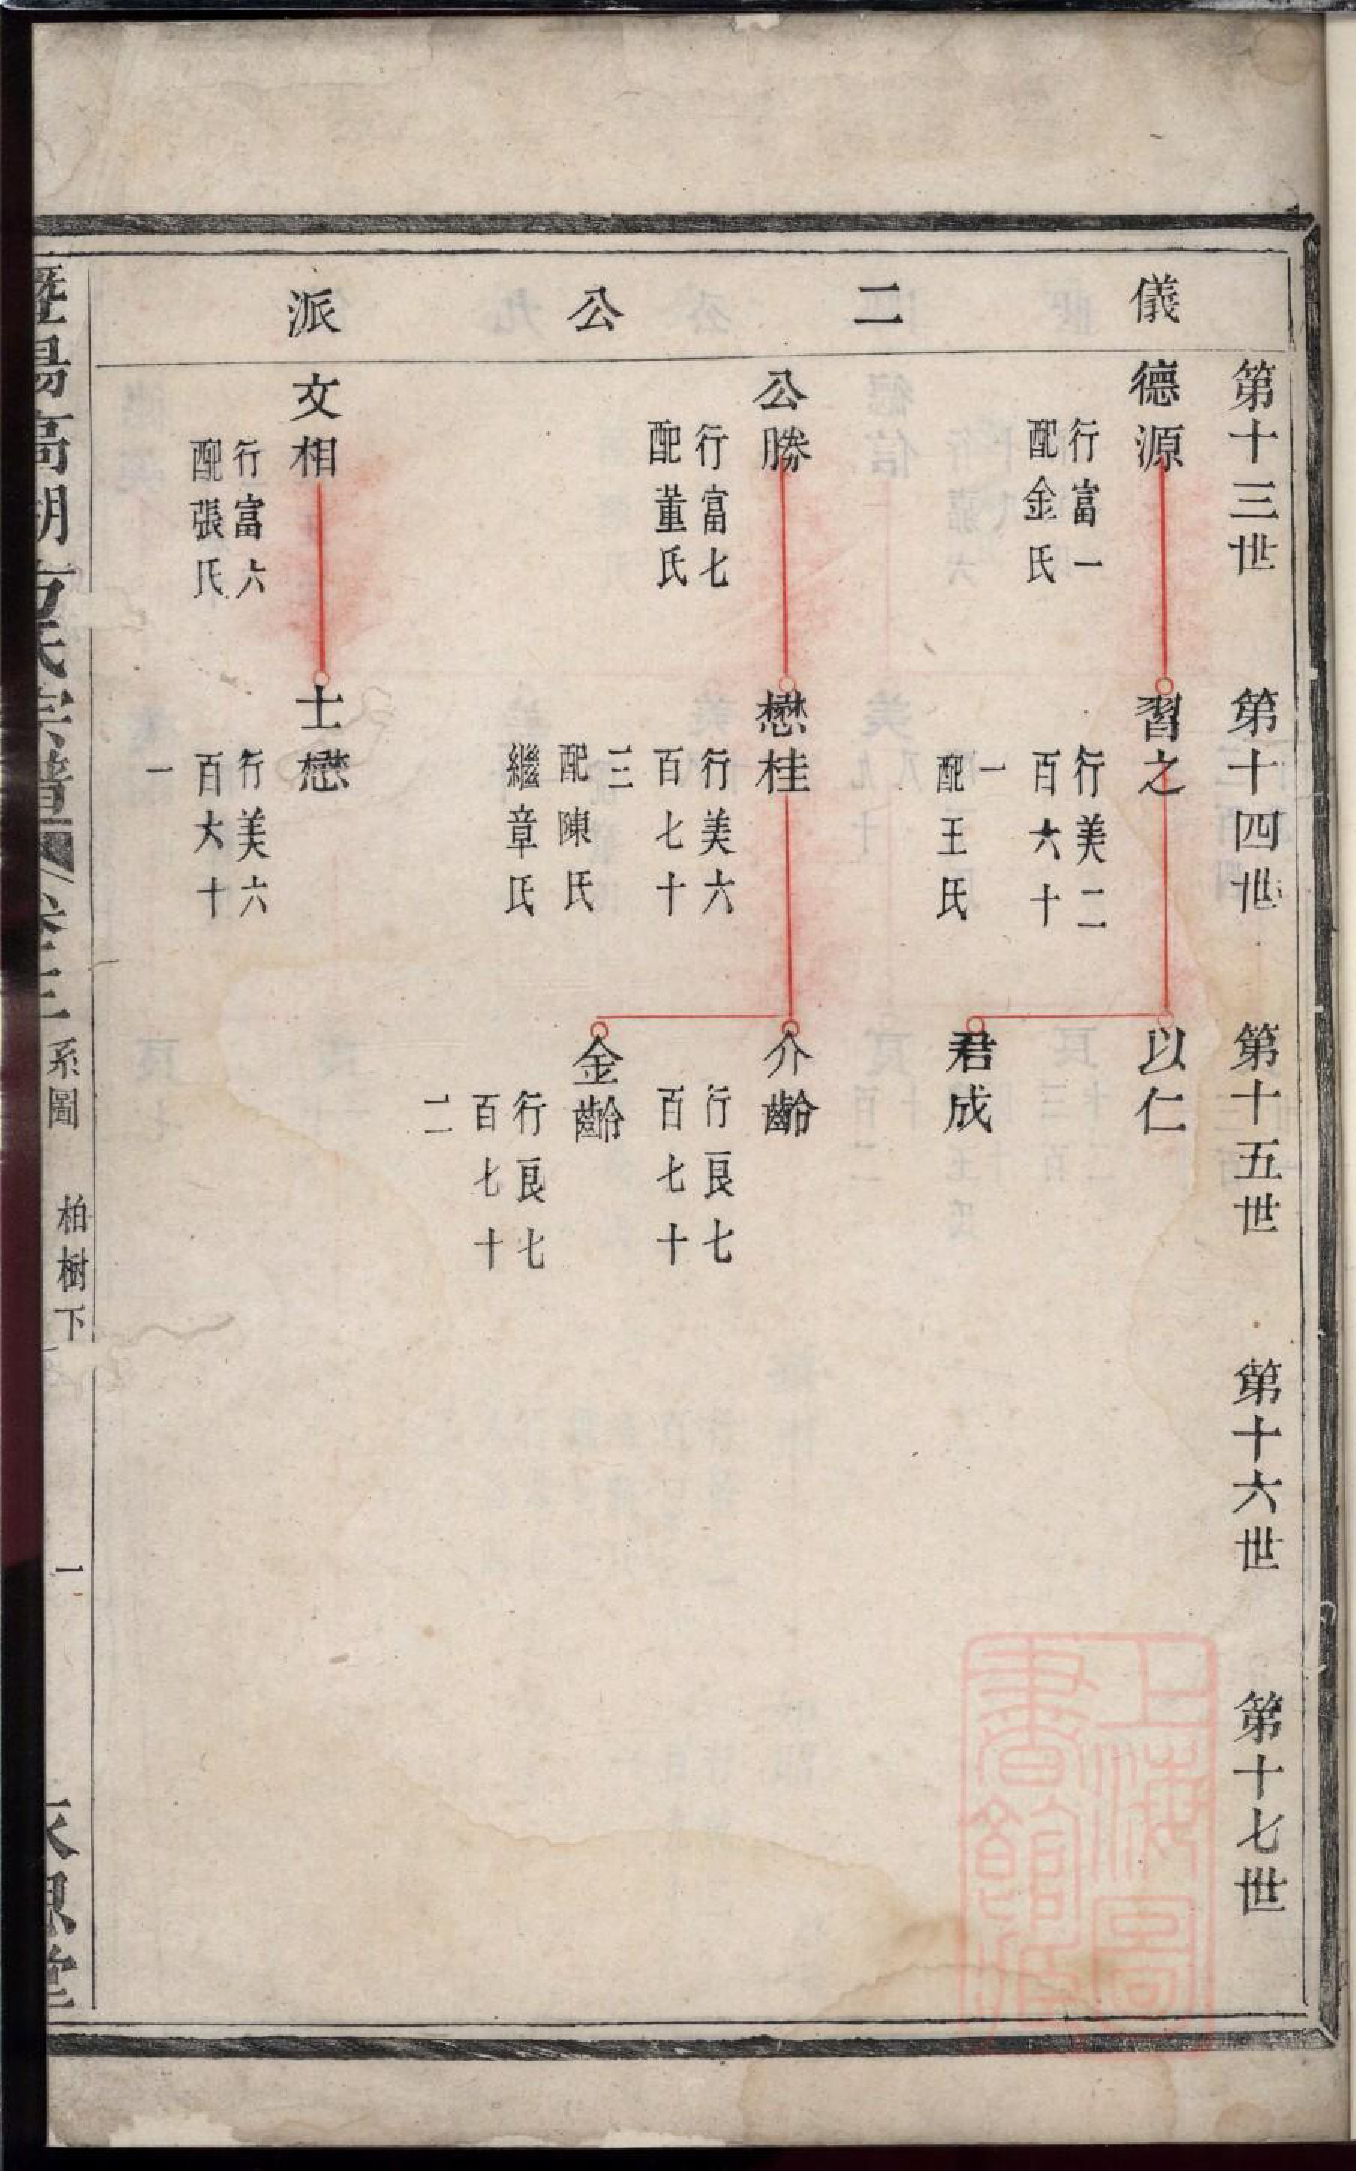 儀二公派
第十三世
第十四世
第十五世
第十六世
第十七世
德源
行富一
配金氏
習之
行美二
百六十
一
配王氏
以仁
君成
公勝
行富七
配董氏
懋桂
行美六
百七十
三
配陳氏
繼章氏
介齡
行良七
百七十
金齡
行良七
百七十
二
文相
行富六
配張氏
士懋
行美六
百六十
一
暨陽高湖
氏宗譜
卷三
系圖
柏樹下
一
永思堂
上海圖
書館藏